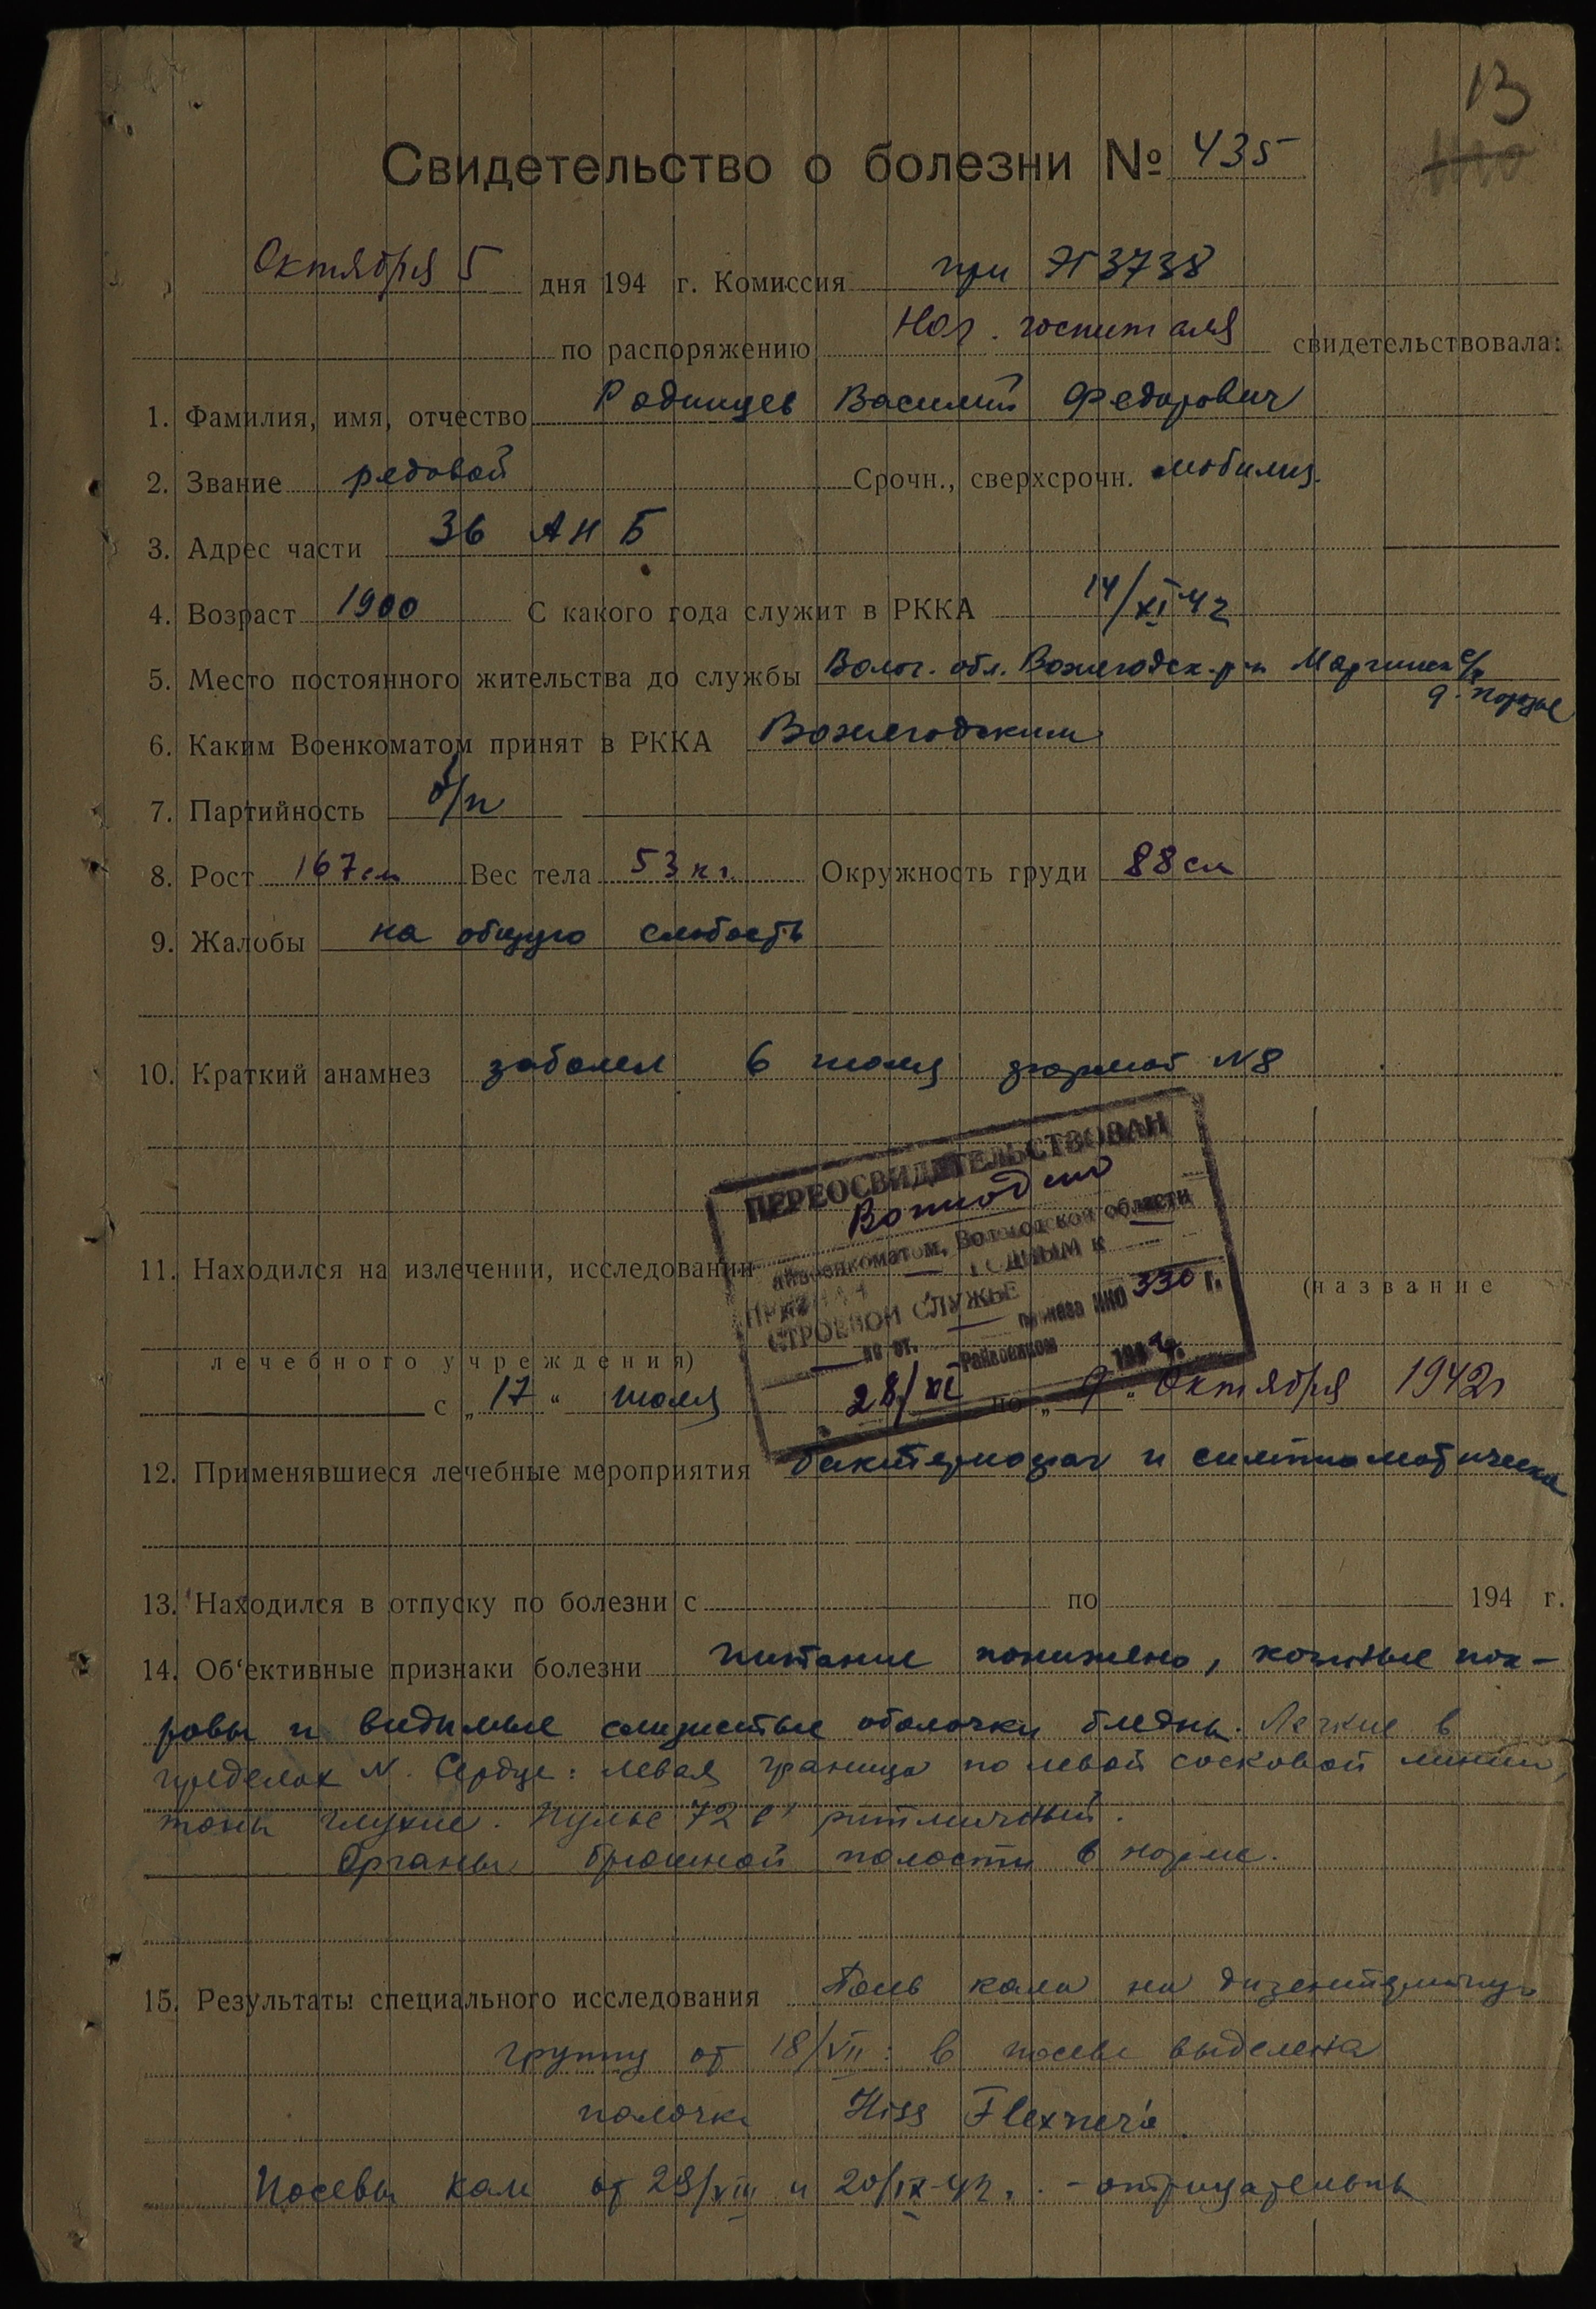 13
Свидетельство о болезни № 435
Октября 5 дня 194 г. Комиссия при ЭГ 3738
по распоряжению Нач. госпиталя свидетельствовала:
1. Фамилия, имя, отчество Радинцев Василий Федорович
2. Звание рядовой Срочн., сверхсрочн. мобилиз.
3. Адрес части 36
4. Возраст 1900 С какого года служит в РККА 14/XI 42
5. Место постоянного жительства до службы Волог. обл. Вожегодск. р-н с/с
д.
6. Каким Военкоматом принят в РККА Вожегодским
7. Партийность б/п
8. Рост 167 см Вес тела 53 кг. Окружность груди 88 см
9. Жалобы на общую слабость
10. Краткий анамнез заболел 6 июля №8
ПЕРЕОСВИДЕТЕЛЬСТВОВАН
райвоенкоматом, Вологодской области
11. Находился на излечении, исследовании (название
ПРИЗНАН ГОДНЫМ К
СТРОЕВОЙ СЛУЖБЕ
по ст. приказа НКО 330 г.
Райвоенком 194 г.
лечебного учреждения)
28/XI
с „17" июля по „9" Октября 1942 г
12. Применявшиеся лечебные мероприятия бактериофаг и симптоматическое
13. Находился в отпуску по болезни с по 194 г.
14. Об'ективные признаки болезни питание понижено, кожные пок-
ровы и видимые слизистые оболочки бледны. Легкие в
пределах N. Сердце: левая граница по левой сосковой линии,
тоны глухие. Пульс 72 в 1' ритмичный.
Органы брюшной полости в норме.
15. Результаты специального исследования Посев кала на дизентерийную
группу от 18/VII: в посеве выделена
палочка Hiss Flexner'a.
Посевы кала от 29/VIII и 20/IX-42. - отрицательны